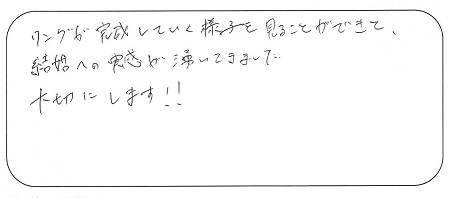 リングが完成していく様子を見ることができて、
結婚への実感が湧いてきました
大切にします!!